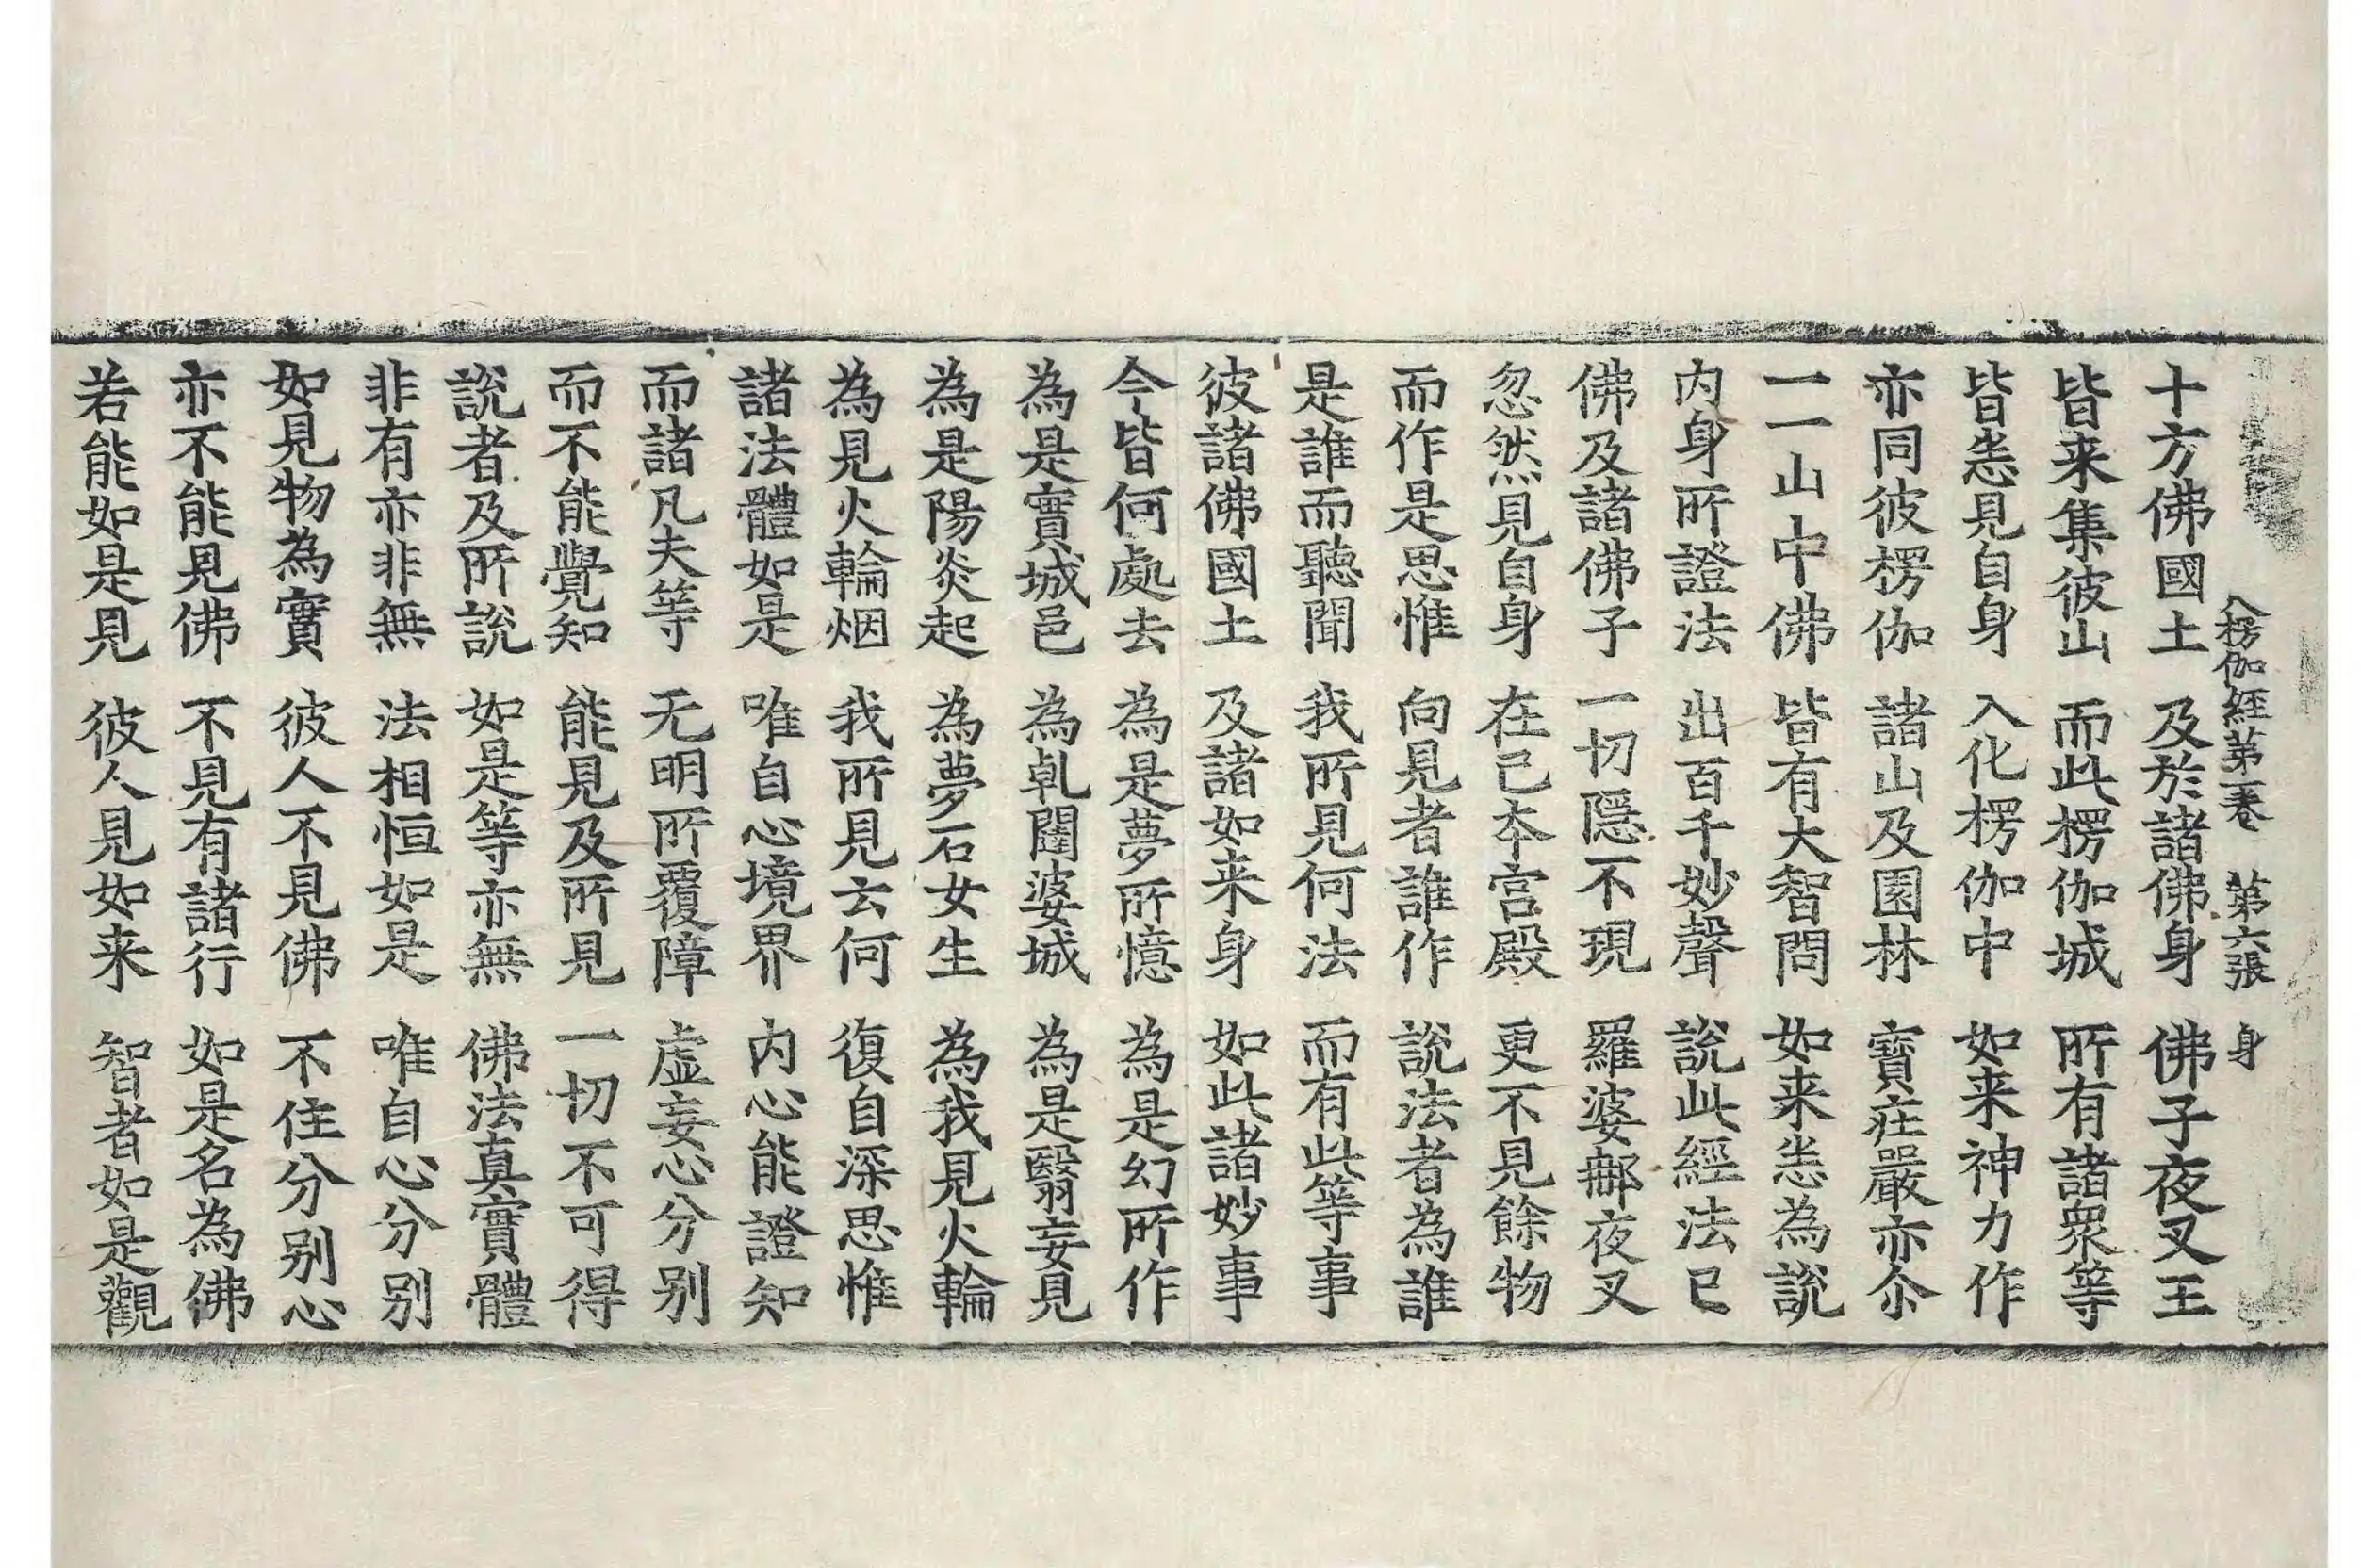 入楞伽經第一卷　第六張　身
十方佛國土　及於諸佛身　佛子夜叉王
皆来集彼山　而此楞伽城　所有諸衆等
皆悉見自身　入化楞伽中　如来神力作
亦同彼楞伽　諸山及園林　寶莊嚴亦尒
一一山中佛　皆有大智問　如来悉為説
内身所證法　出百千妙聲　説此經法已
佛及諸佛子　一切隱不現　羅婆那夜叉
忽然見自身　在己本宫殿　更不見餘物
而作是思惟　向見者誰作　説法者為誰
是誰而聽聞　我所見何法　而有此等事
彼諸佛國土　及諸如来身　如此諸妙事
今皆何處去　為是夢所憶　為是幻所作
為是實城邑　為乹闥婆城　為是翳妄見
為是陽炎起　為夢石女生　為我見火輪
為見火輪烟　我所見云何　復自深思惟
諸法體如是　唯自心境界　内心能證知
而諸凡夫等　无明所覆障　虚妄心分别
而不能覺知　能見及所見　一切不可得
説者及所説　如是等亦無　佛法真實體
非有亦非無　法相恒如是　唯自心分别
如見物為實　彼人不見佛　不住分别心
亦不能見佛　不見有諸行　如是名為佛
若能如是見　彼人見如来　智者如是觀